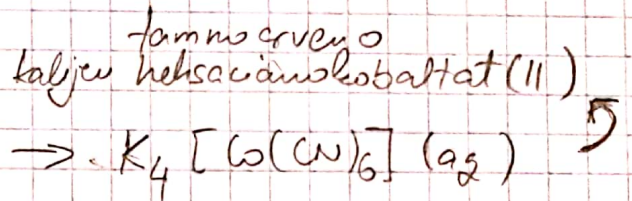 tamnocrveno
kalijev heksacianokobaltat(II)
→ K₄[Co(CN)₆](aq)